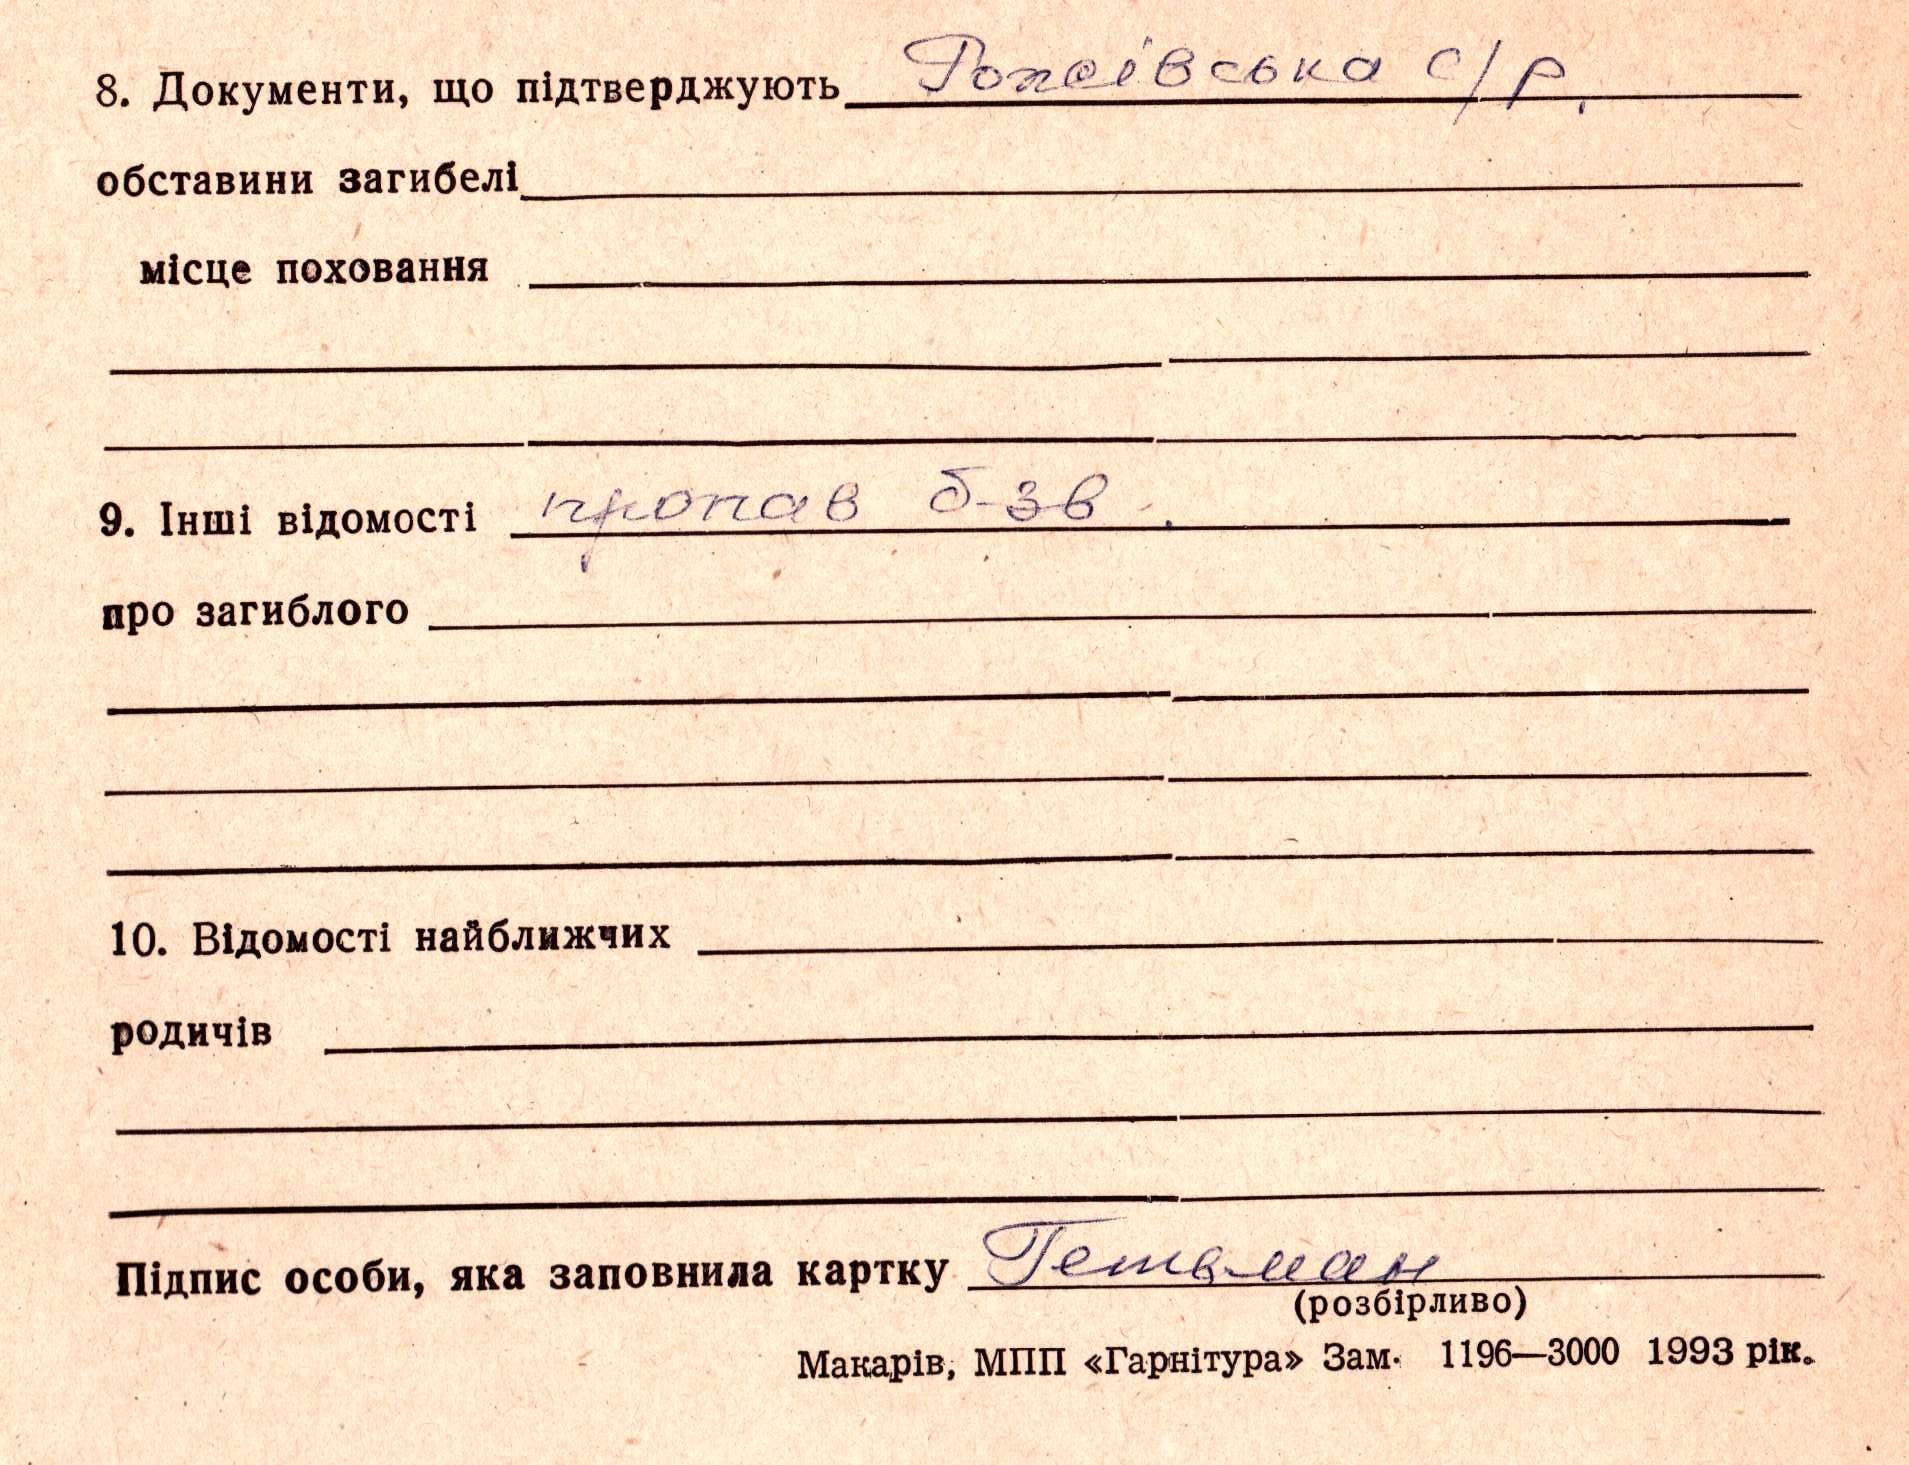 8. Документи, що підтверджують Рожівська с/р.
обставини загибелі
місце поховання
9. Інші відомості пропав б-зв.
про загиблого
10. Відомості найближчих
родичів
Підпис особи, яка заповнила картку Гетьман
(розбірливо)
Макарів, МПП «Гарнітура» Зам. 1196—3000 1993 рік.